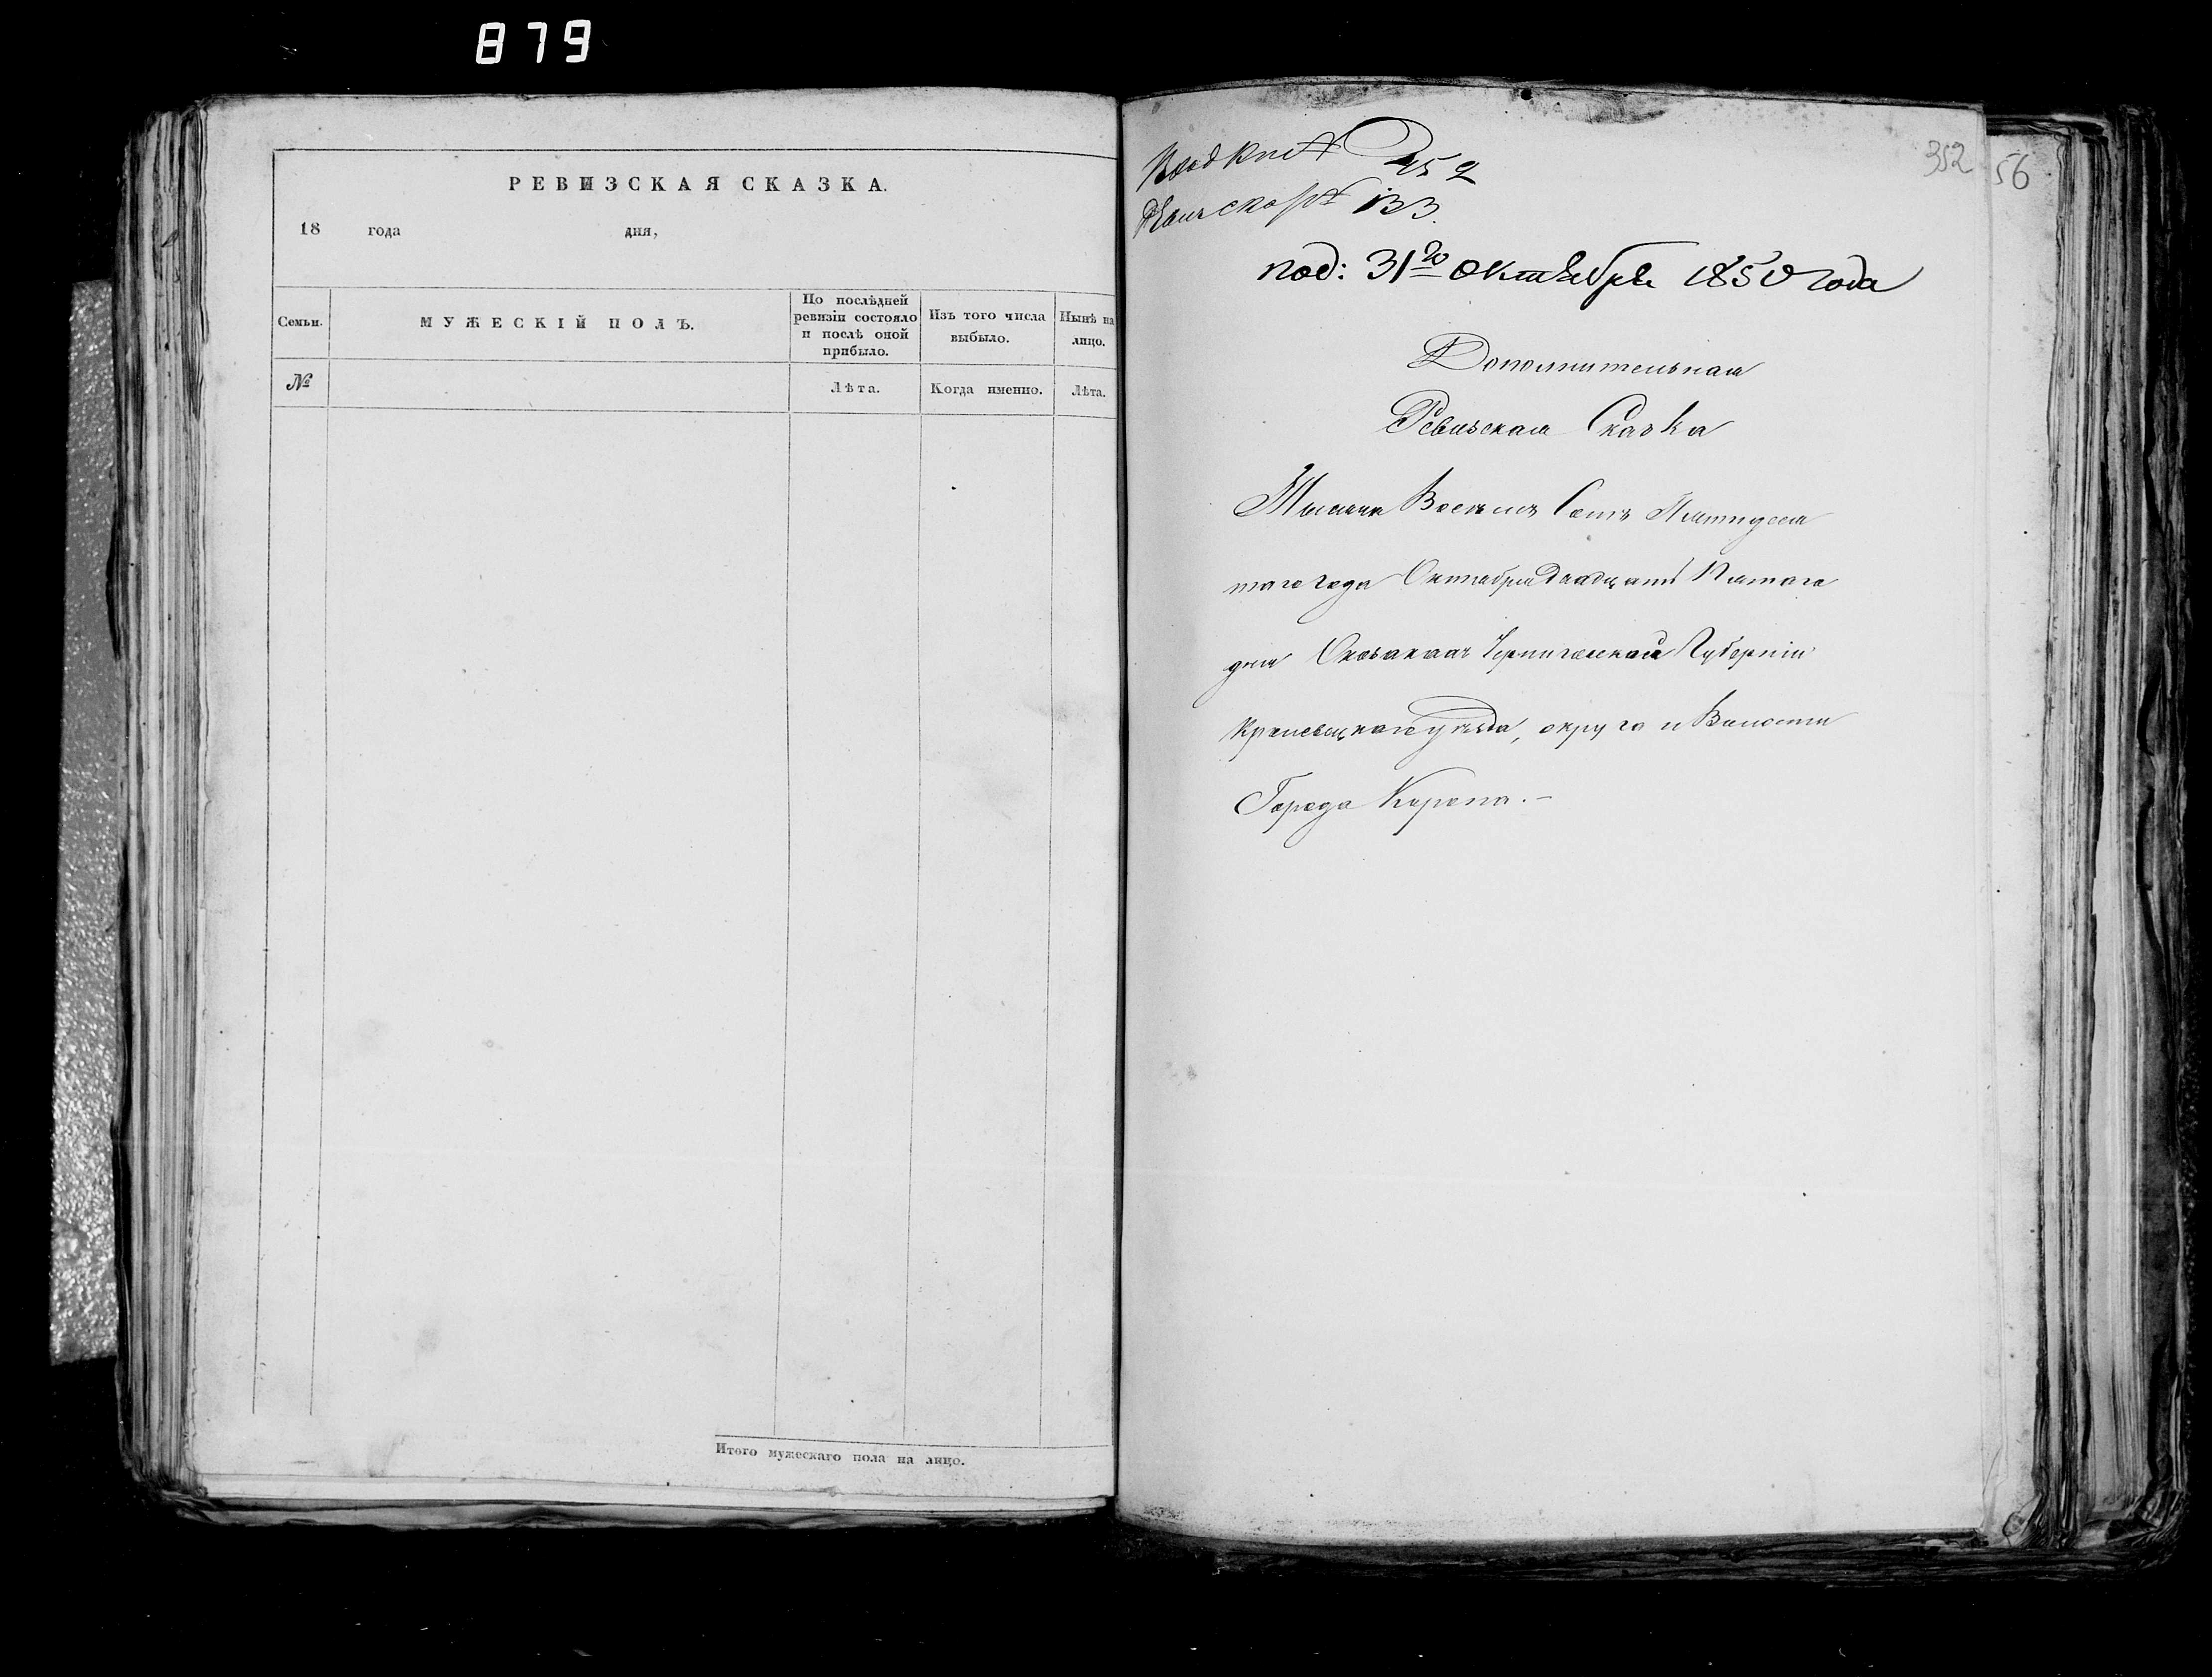 879
РЕВИЗСКАЯ СКАЗКА.
18 года дня,
Семьи.
МУЖЕСКІЙ ПОЛЪ.
По послѣдней
ревизіи состояло
и послѣ оной
прибыло.
Изъ того числа
выбыло.
Нынѣ на
лицо.
№
Лѣта.
Когда именно.
Лѣта.
Итого мужескаго пола на лицо.
352 56
133.
под: 31го октября 1850 года
Дополнительная
Ревизская Сказка
Тысяча Восемь Сотъ Пятидеся
таго года Октября двадцать Пятаго
дня Черниговской Губерніи
Кролевецкаго уѣзда, округа и Волости
Города Коропа.-